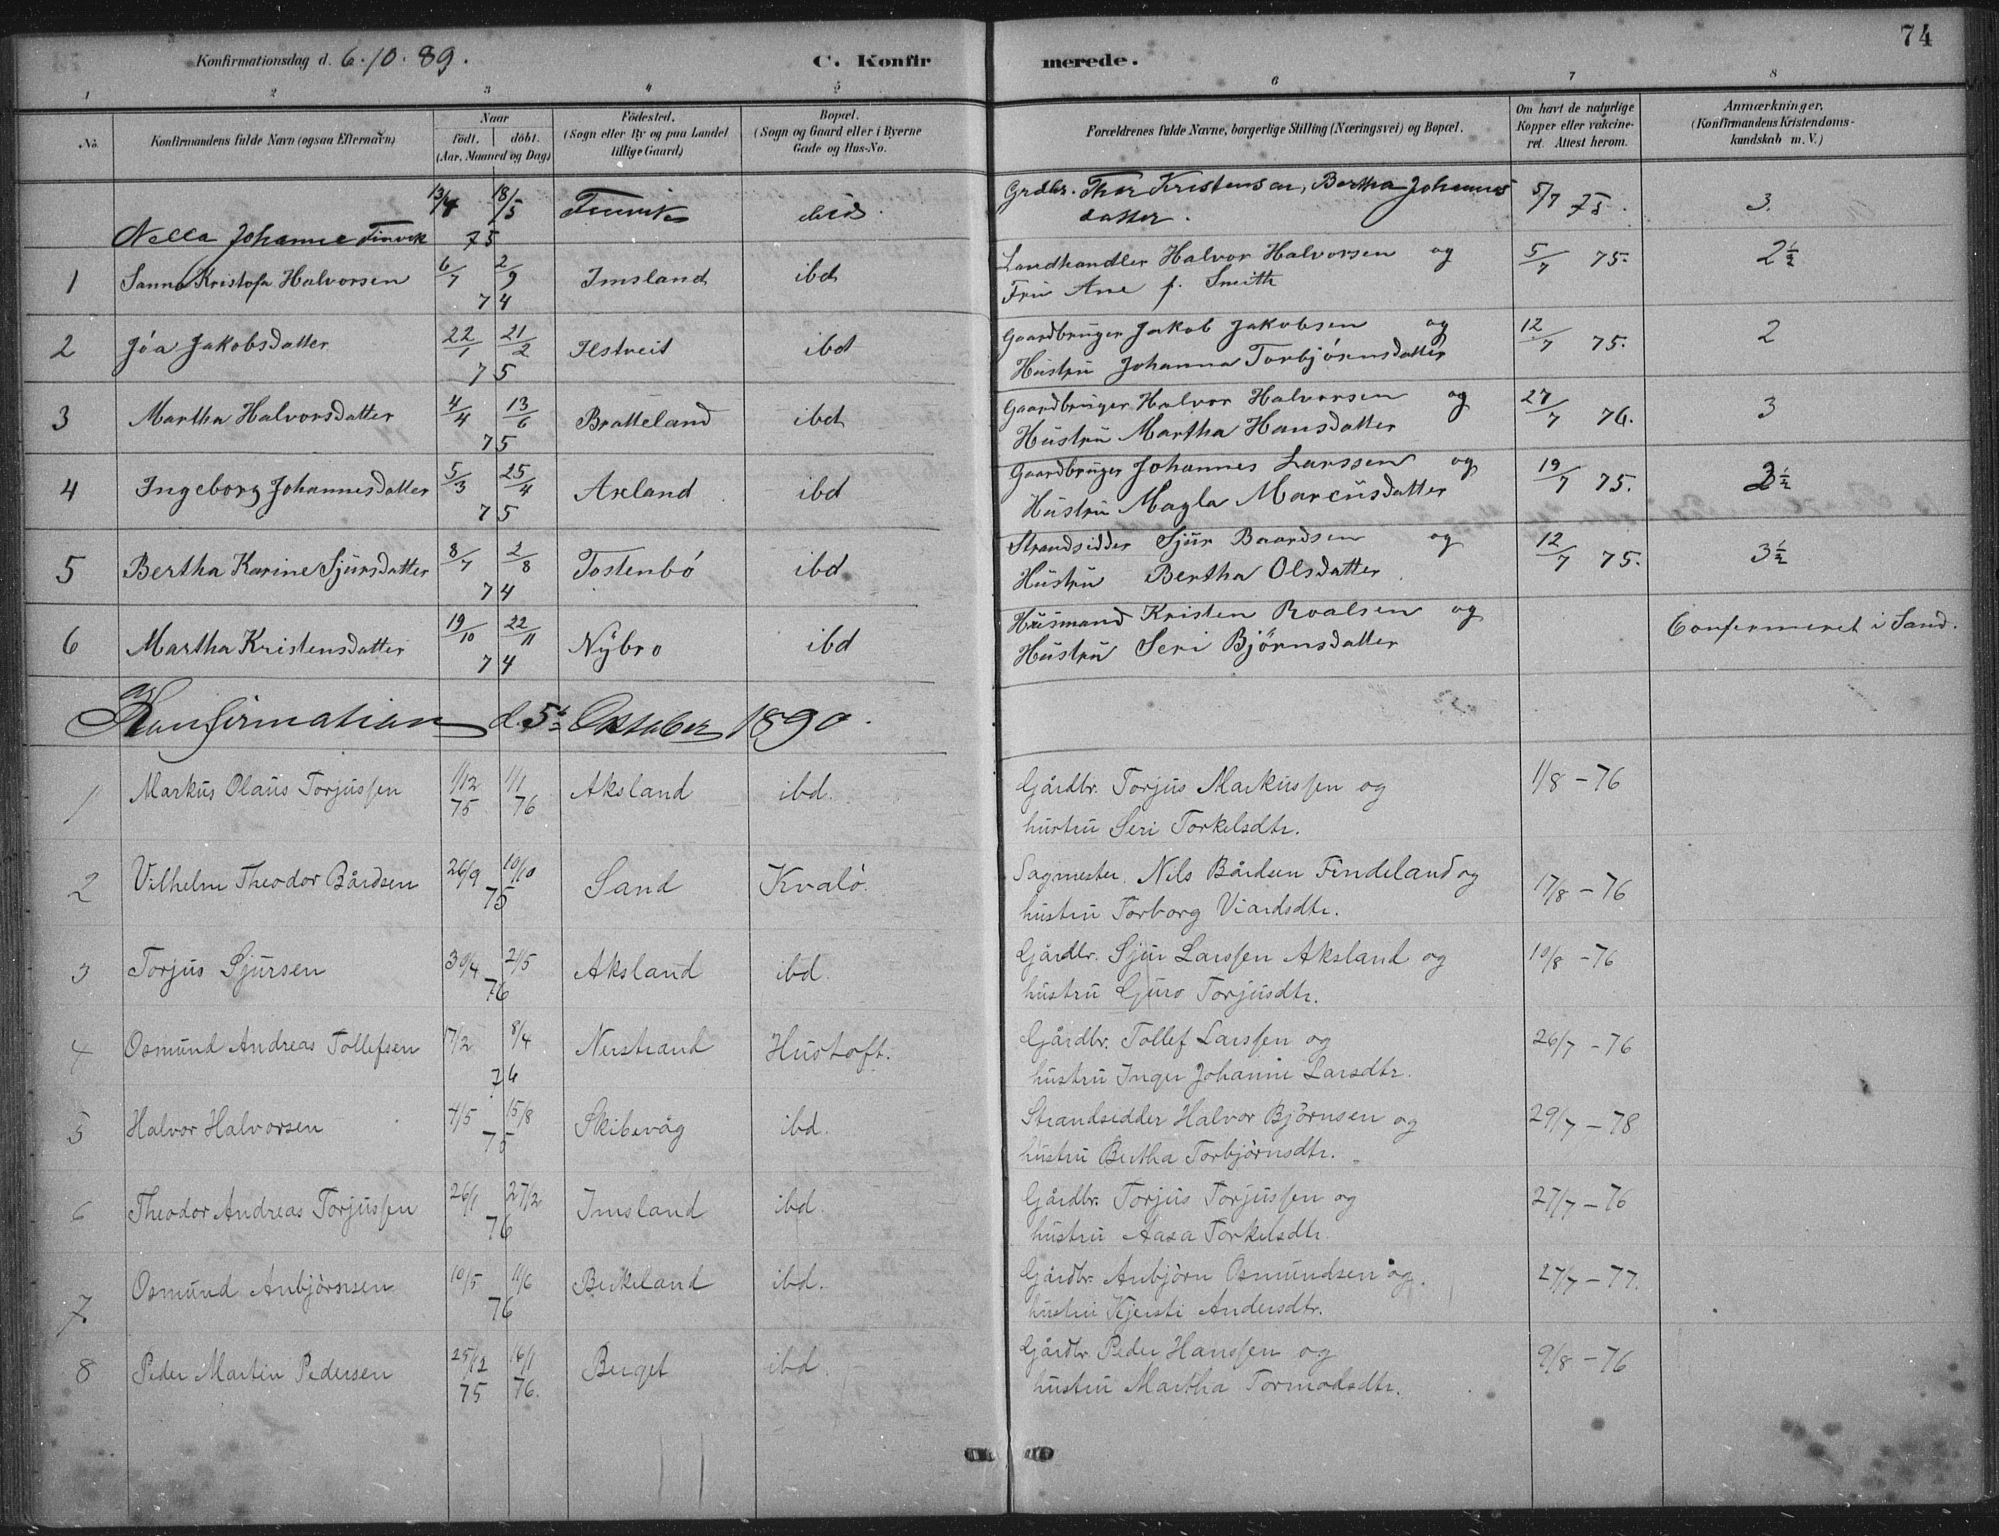 74
Konfirmationsdag d. 6.10.89. C. Konfirmerede.
1 2 3 4 5 6 7 8
No. Konfirmandens fulde Navn (ogsaa Efternavn) Naar født. døbt. (Aar, Maaned og Dag) Fødested. (Sogn eller By og paa Landet tillige Gaard) Bopæl. (Sogn og Gaard eller i Byerne Gade og Hus-No. Forældrenes fulde Navne, borgerlige Stilling (Næringsvei) og Bopæl. Om havt de naturlige Kopper eller vakcineret. Attest herom. Anmærkninger. (Konfirmandens Kristendomskundskab m. V.)
Nella Johanne Finvik 13/4 18/5 75 Finvik ibid. Grdbr. Thor Kristensen, Bertha Johannes 5/7 75. 3.
datter.
1 Sanna Kristofa Halvorsen 6/7 2/9 74 Imsland ibd Landhandler Halvor Halvorsen og 5/7 75. 2½
Fru Ane f. Smith
2 Jóa Jakobsdatter 22/1 21/2 75 Ilstveit ibd Gaardbruger Jakob Jakobsen og 12/7 75. 2
Hustru Johanna Torbjørnsdatter
3 Martha Halvorsdatter 4/4 13/6 75 Bratteland ibd Gaardbruger Halvor Halvorsen og 27/7 76. 3
Hustru Martha Hansdatter
4 Ingeborg Johannesdatter 5/3 25/4 75 Axland ibd Gaardbruger Johannes Larssen og 19/7 75. 3½
Hustru Magla Marcusdatter
5 Bertha Karine Sjursdatter 8/7 2/8 74 Tostenbó ibd Strandsidder Sjur Baardsen og 12/7 75. 3½
Hustru Bertha Olsdatter
6 Martha Kristensdatter 19/10 22/11 74 Nybro ibd Husmand Kristen Roalsen og Confermeret i Sand.
Hustru Seri Bjørnsdatter
Konfirmation d. 5te Oktober 1890.
1 Markus Olaus Torjussen 1/12 75 1/1 76 Aksland ibd. Gårdbr. Torjus Markussen og 11/8 - 76
hustru Seri Torkelsdtr.
2 Vilhelm Theodor Bårdsen 26/9 10/10 75 Sand Kvaló. Sagmester. Nils Bårdsen Findeland og 17/8 - 76
hustru Torborg Viardsdtr.
3 Torjus Sjursen 30/4 21/5 76 Aksland ibd. Gårdbr. Sjur Larssen Aksland og 10/8 - 76
hustru Guro Torjusdtr.
4 Osmund Andreas Tollefsen 17/2 8/4 76 Nerstrand Hustoft. Gårdbr. Tollef Larssen og 26/7 - 76
hustru Inger Johanne Larsdtr.
5 Halvor Halvorsen 4/5 15/8 75 Skibevåg ibd. Strandsidder Halvor Bjørnsen og 29/7 - 78
hustru Bertha Torbjørnsdtr.
6 Theodor Andreas Torjussen 26/1 27/2 76 Imsland ibd. Gårdbr. Torjus Torjussen og 27/7 - 76
hustru Aasa Torkelsdtr.
7 Osmund Anbjørnsen 10/5 11/6 76 Berkeland ibd. Gårdbr. Anbjørn Osmundsen og 27/7 - 77.
hustru Kjersti Andersdtr.
8 Peder Martin Pedersen 25/12 75 16/1 76. Berget ibd. Gårdbr. Peder Hanssen og 9/8 - 76
hustru Martha Tormodsdtr.